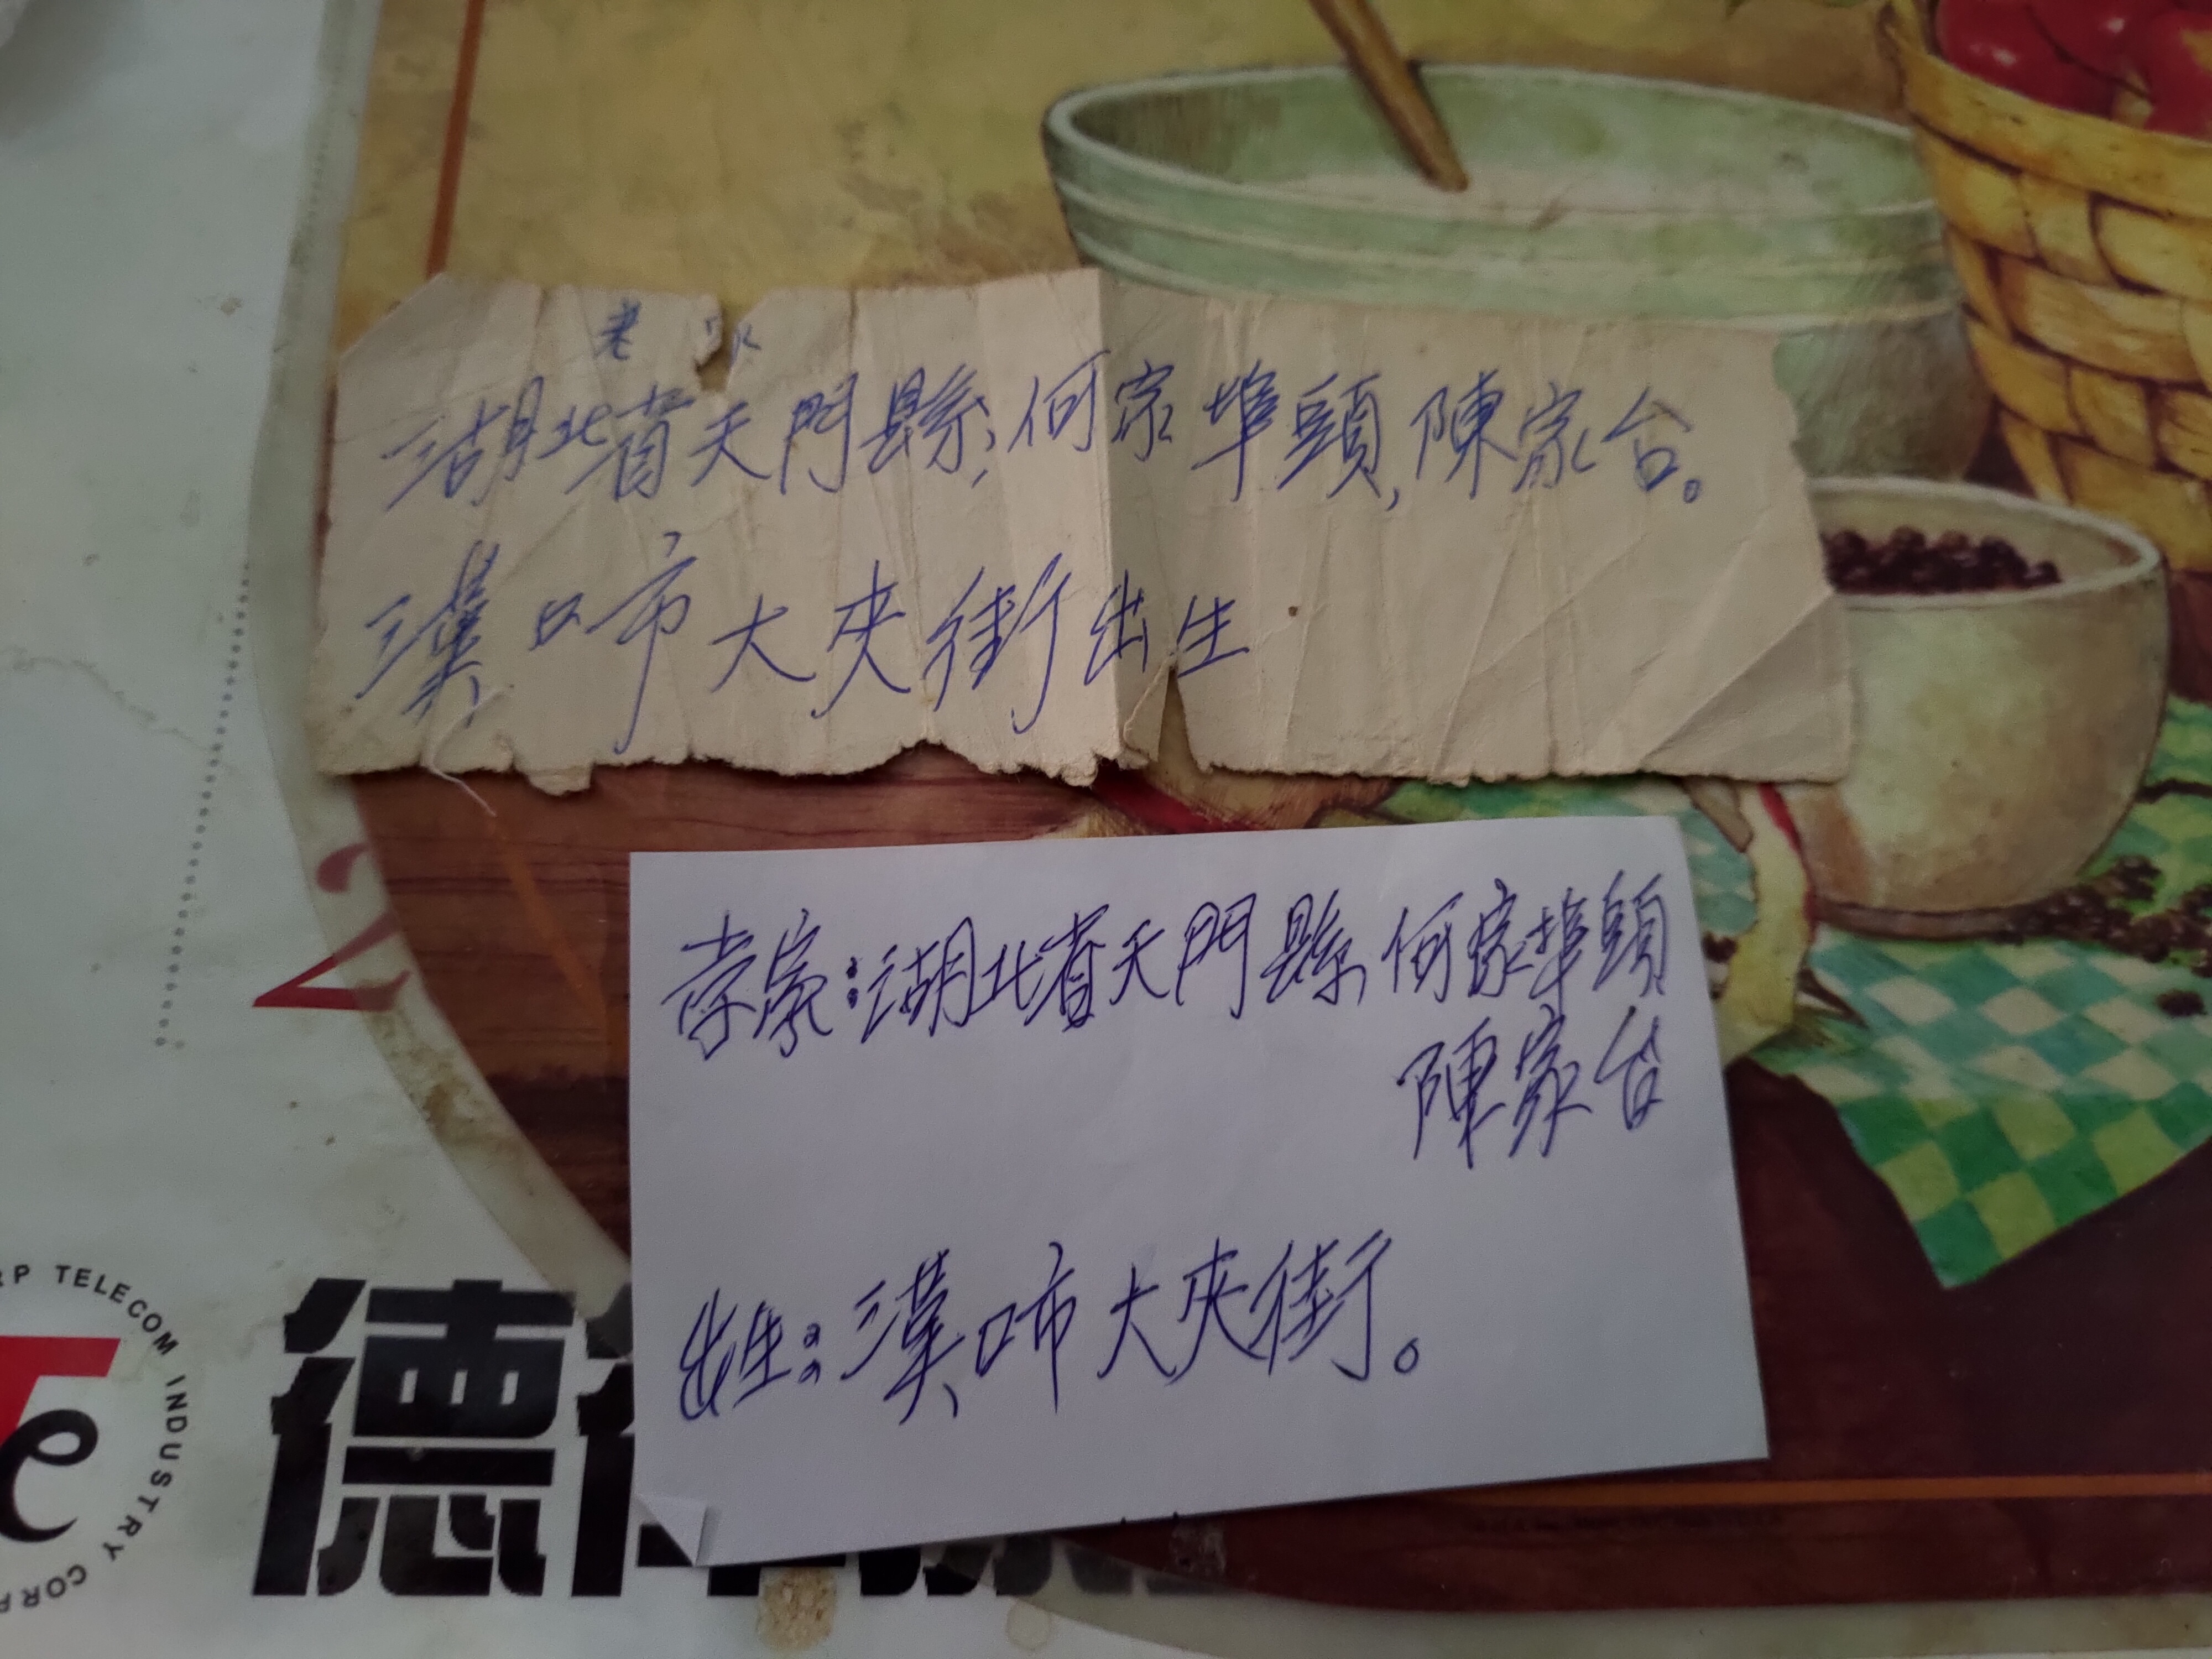 老
湖北省天門縣，何家埠頭，陳家台。
漢口市大夾街出生
老家：湖北省天門縣 何家埠頭
陳家台
出生：漢口市大夾街。
2
TELECOM INDUSTRY
德